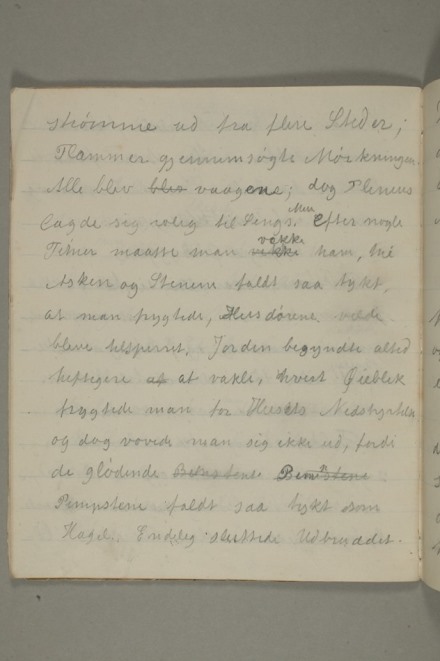 strømme ud fra flere Steder;
Flammer gjennemsøgte Mørkningen.
Alle blev blev vaagene; dog Plinius
lagde sig rolig til Sengs. Men Efter nogle
Timer maatte man vække ham, thi
Asken og Stenene faldt saa tykt,
at man frygtede, Husdørene vilde
bleve tilsperret. Jorden begyndte altid
heftigere at vakle, hvert Øieblik
frygtede man for Husets Nedstyrtelse
og dog vovede man sig ikke ud, fordi
de glødende
Pimpstene faldt saa tykt som
Hagel. Endelig sluttede Udbruddet.